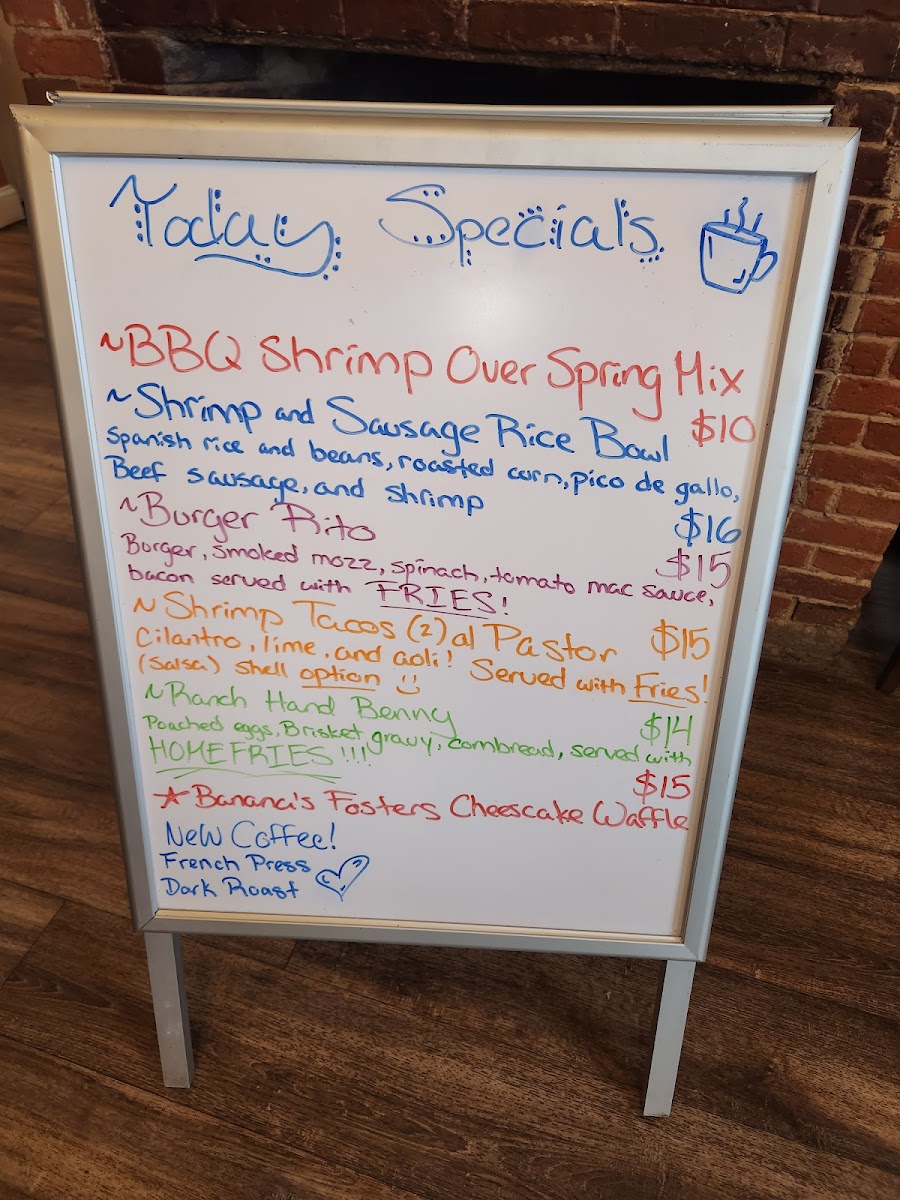 ~Today Specials
~BBQ Shrimp Over Spring Mix
$10
~Shrimp and Sausage Rice Bowl
Spanish rice and beans, roasted corn, pico de gallo,
Beef sausage, and shrimp
$16
~Burger Rito $15
Burger, smoked mozz, spinach, tomato mac sauce,
bacon served with FRIES!
~Shrimp Tacos (2) al Pastor $15
Cilantro, lime, and aoli! Served with Fries!
(salsa) shell option :)
~Ranch Hand Benny $14
Poached eggs, Brisket gravy, cornbread, served with
HOMEFRIES!!!
$15
☆ Banana's Fosters Cheescake Waffle
New Coffee!
French Press
Dark Roast